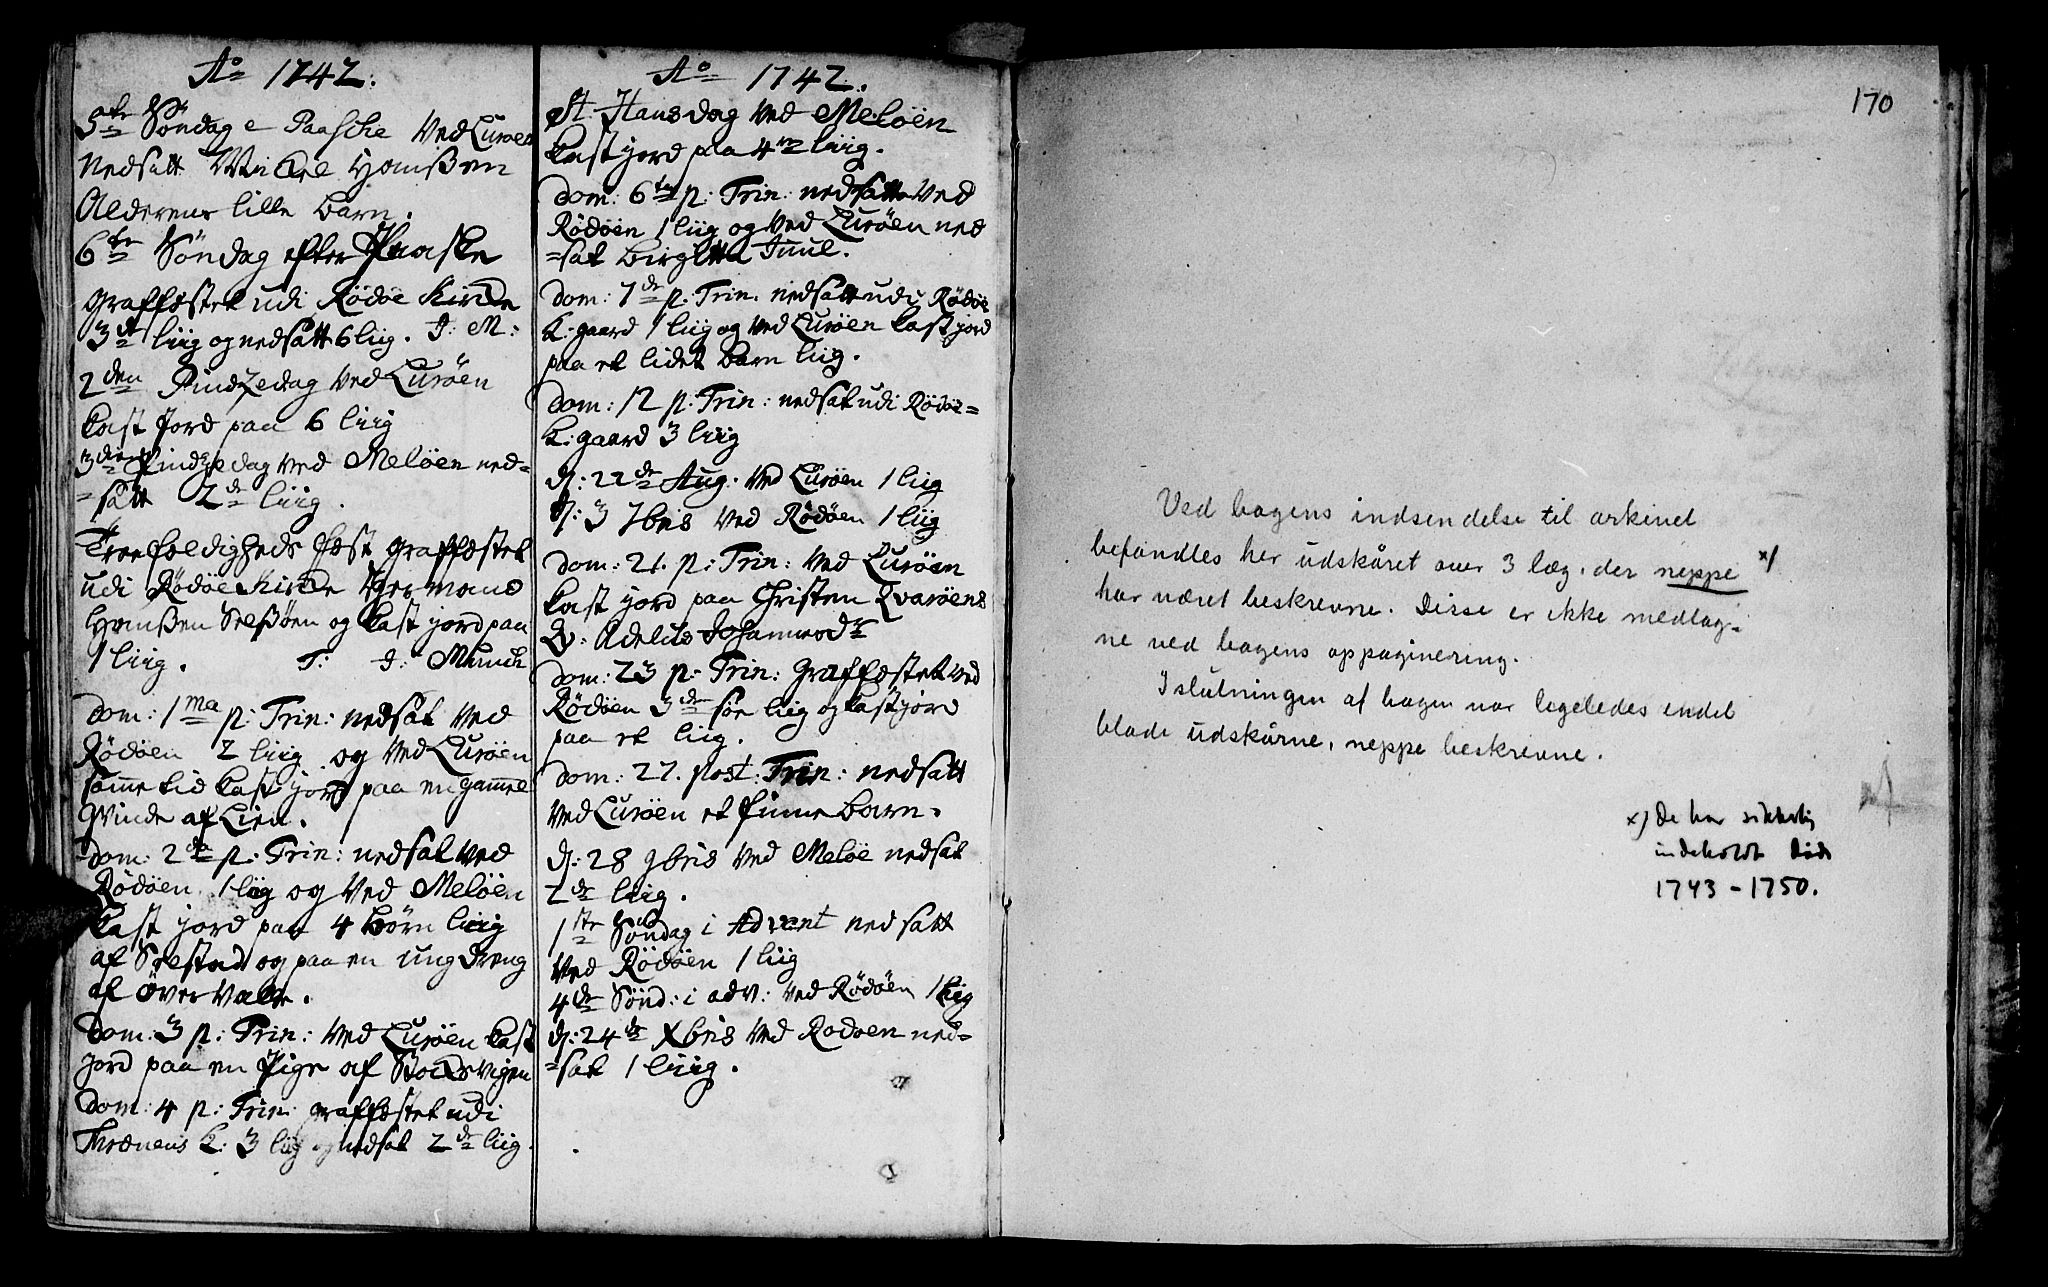 Ao 1742.
5te Söndag e Paasche Ved Luröen
Nedsatt Hanßen
Alderens lille barn.
6te Söndag efter Paaske
graffæstet udi Rödöe Kircke
3de liig og nedsatt 6 liig. J: M:
2den Pindzedag Ved Luröen
kast Jord paa 6 liig
3die Pindzedag ved Melöen ned-
=satt 2de liig.
Treefoldigheds Fæst graffæstet
udi Rödöe Kircke Hermand
Hanßen Selßöen og kast jord paa
1 liig. T: J: Munch
dom: 1ma p: Trin: nedsat ved
Rödöen 2 liig og ved Luröen
samme tid kast jord paa en gammel
Qvinde af Lien.
dom: 2da p: Trin: nedsat ved
Rödöen 1 liig og Ved Melöen
kast jord paa 4 börn liig
af Selstad og paa en ung dreng
af överValle.
dom: 3 p: Trin: Ved Luröen kast
jord paa en Pige af Stocksvigen
dom: 4 p: Trin: graffæstet udi
Thrænens K: 3 liig og nedsat 2de liig.
Ao 1742.
St. Hansdag ved Melöen
kast jord paa 4re liig.
dom: 6te p: Trin: nedsatt Ved
Rödöen 1 liig og ved Luröen ned
=sat Birgitta Juul.
dom: 7de p: Trin. nedsatt udi Rödöe
K: gaard 1 liig og ved Luröen kast jord
paa et lidet barn liig.
dom: 12 p: Trin: nedsat udi Rödöe-
K: gaard 3 liig
d: 22de Aug. Ved Luröen 1 liig
d: 3 7bris Ved Rödöen 1 liig
dom: 21. p: Trin: Ved Luröen
kast jord paa Christen Qvaröens
Q: Adelus Johannesdr
dom: 23 p: Trin: graffæstet ved
Rödöen 3de söe liig og kast jord
paa et liig.
dom: 27. post: Trin: nedsatt
Ved Luröen et finne barn.
d: 28 9bris Ved Melöe nedsat
2de liig.
1ste Söndag i Advent nedsatt
Ved Rödöen 1 liig
4de Sönd: i adv: ved Rödöen 1 liig
d: 24de Xbris Ved Rodoen ned-
=sat 1 liig.
170
Ved bogens indsendelse til arkivet
befandtes her udskåret over 3 læg, der neppe x)
har været beskrevne. Disse er ikke medtag-
ne ved bogens oppaginering.
I slutningen af bogen var legeledes endel
blade udskårne, neppe beskrevne.
x) De har sikkerlig
indeholdt døde
1743 - 1750.